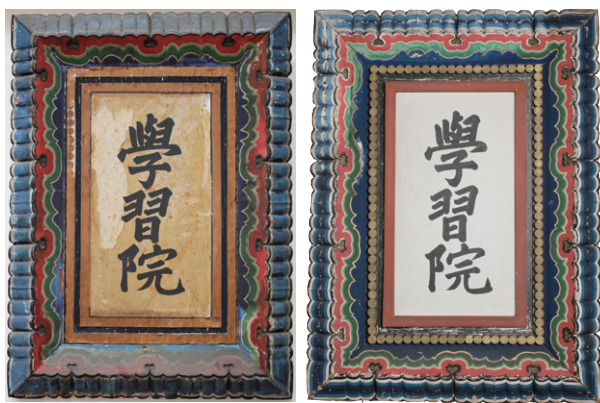 學習院
學習院